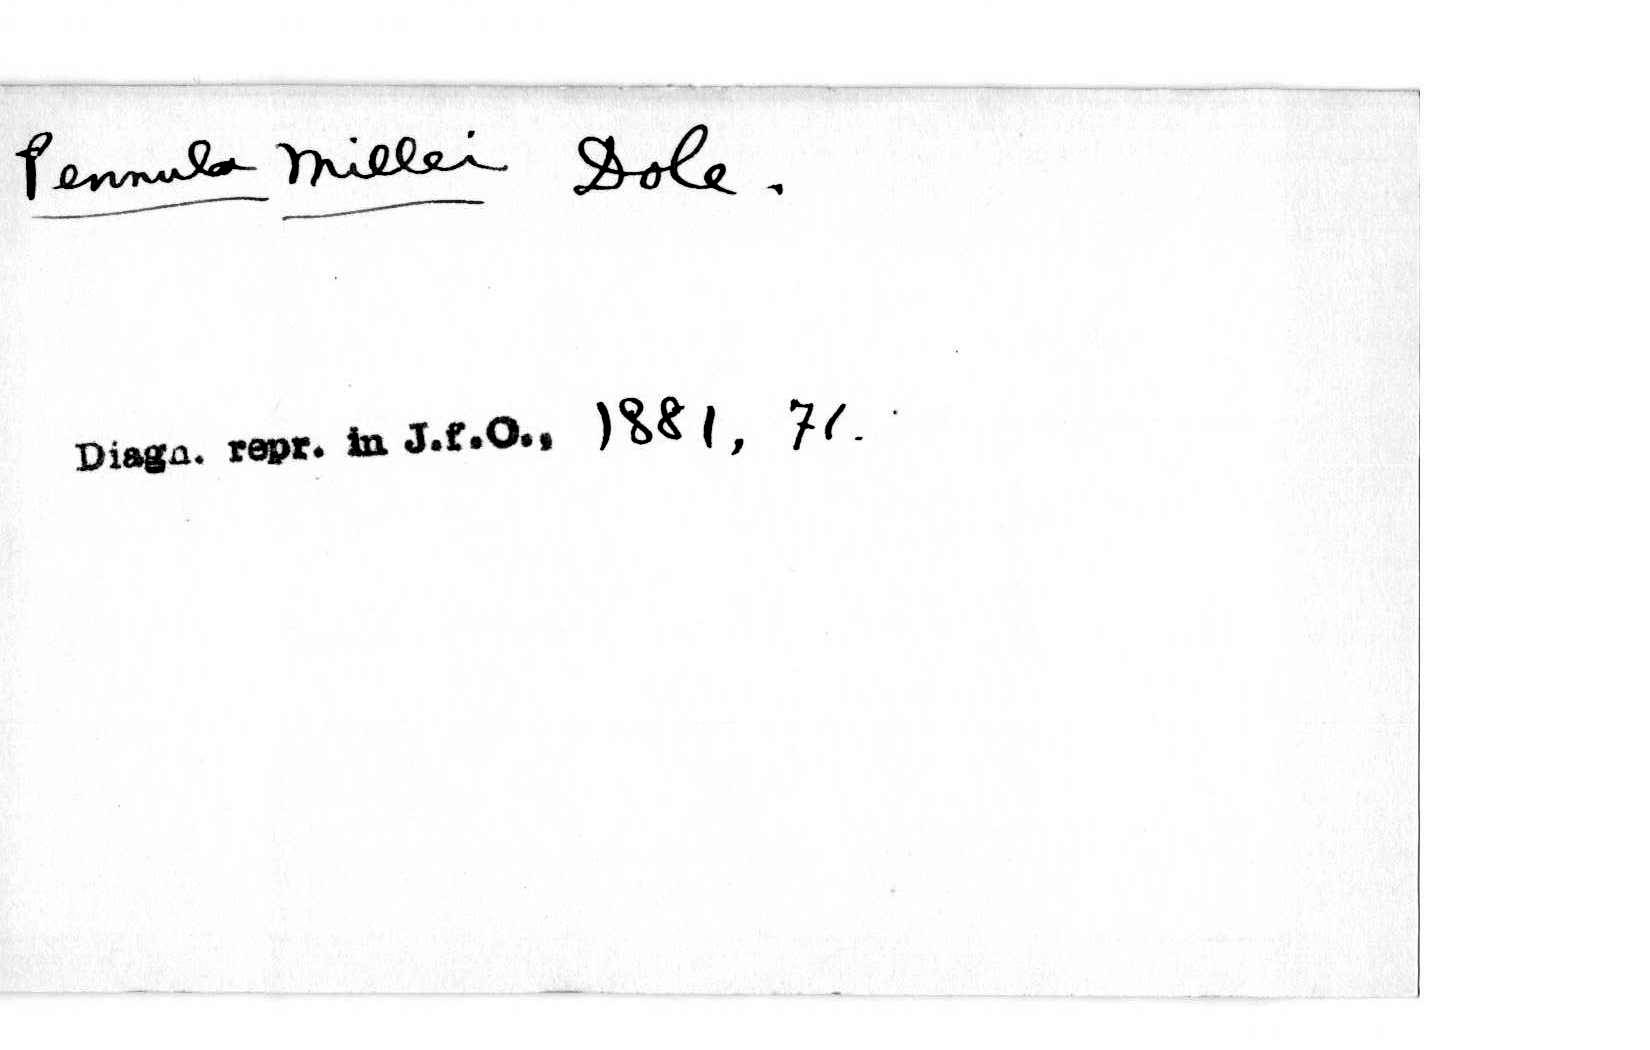 Pennula Millei Dole.
Diagn. repr. in J.f.O., 1881, 71.